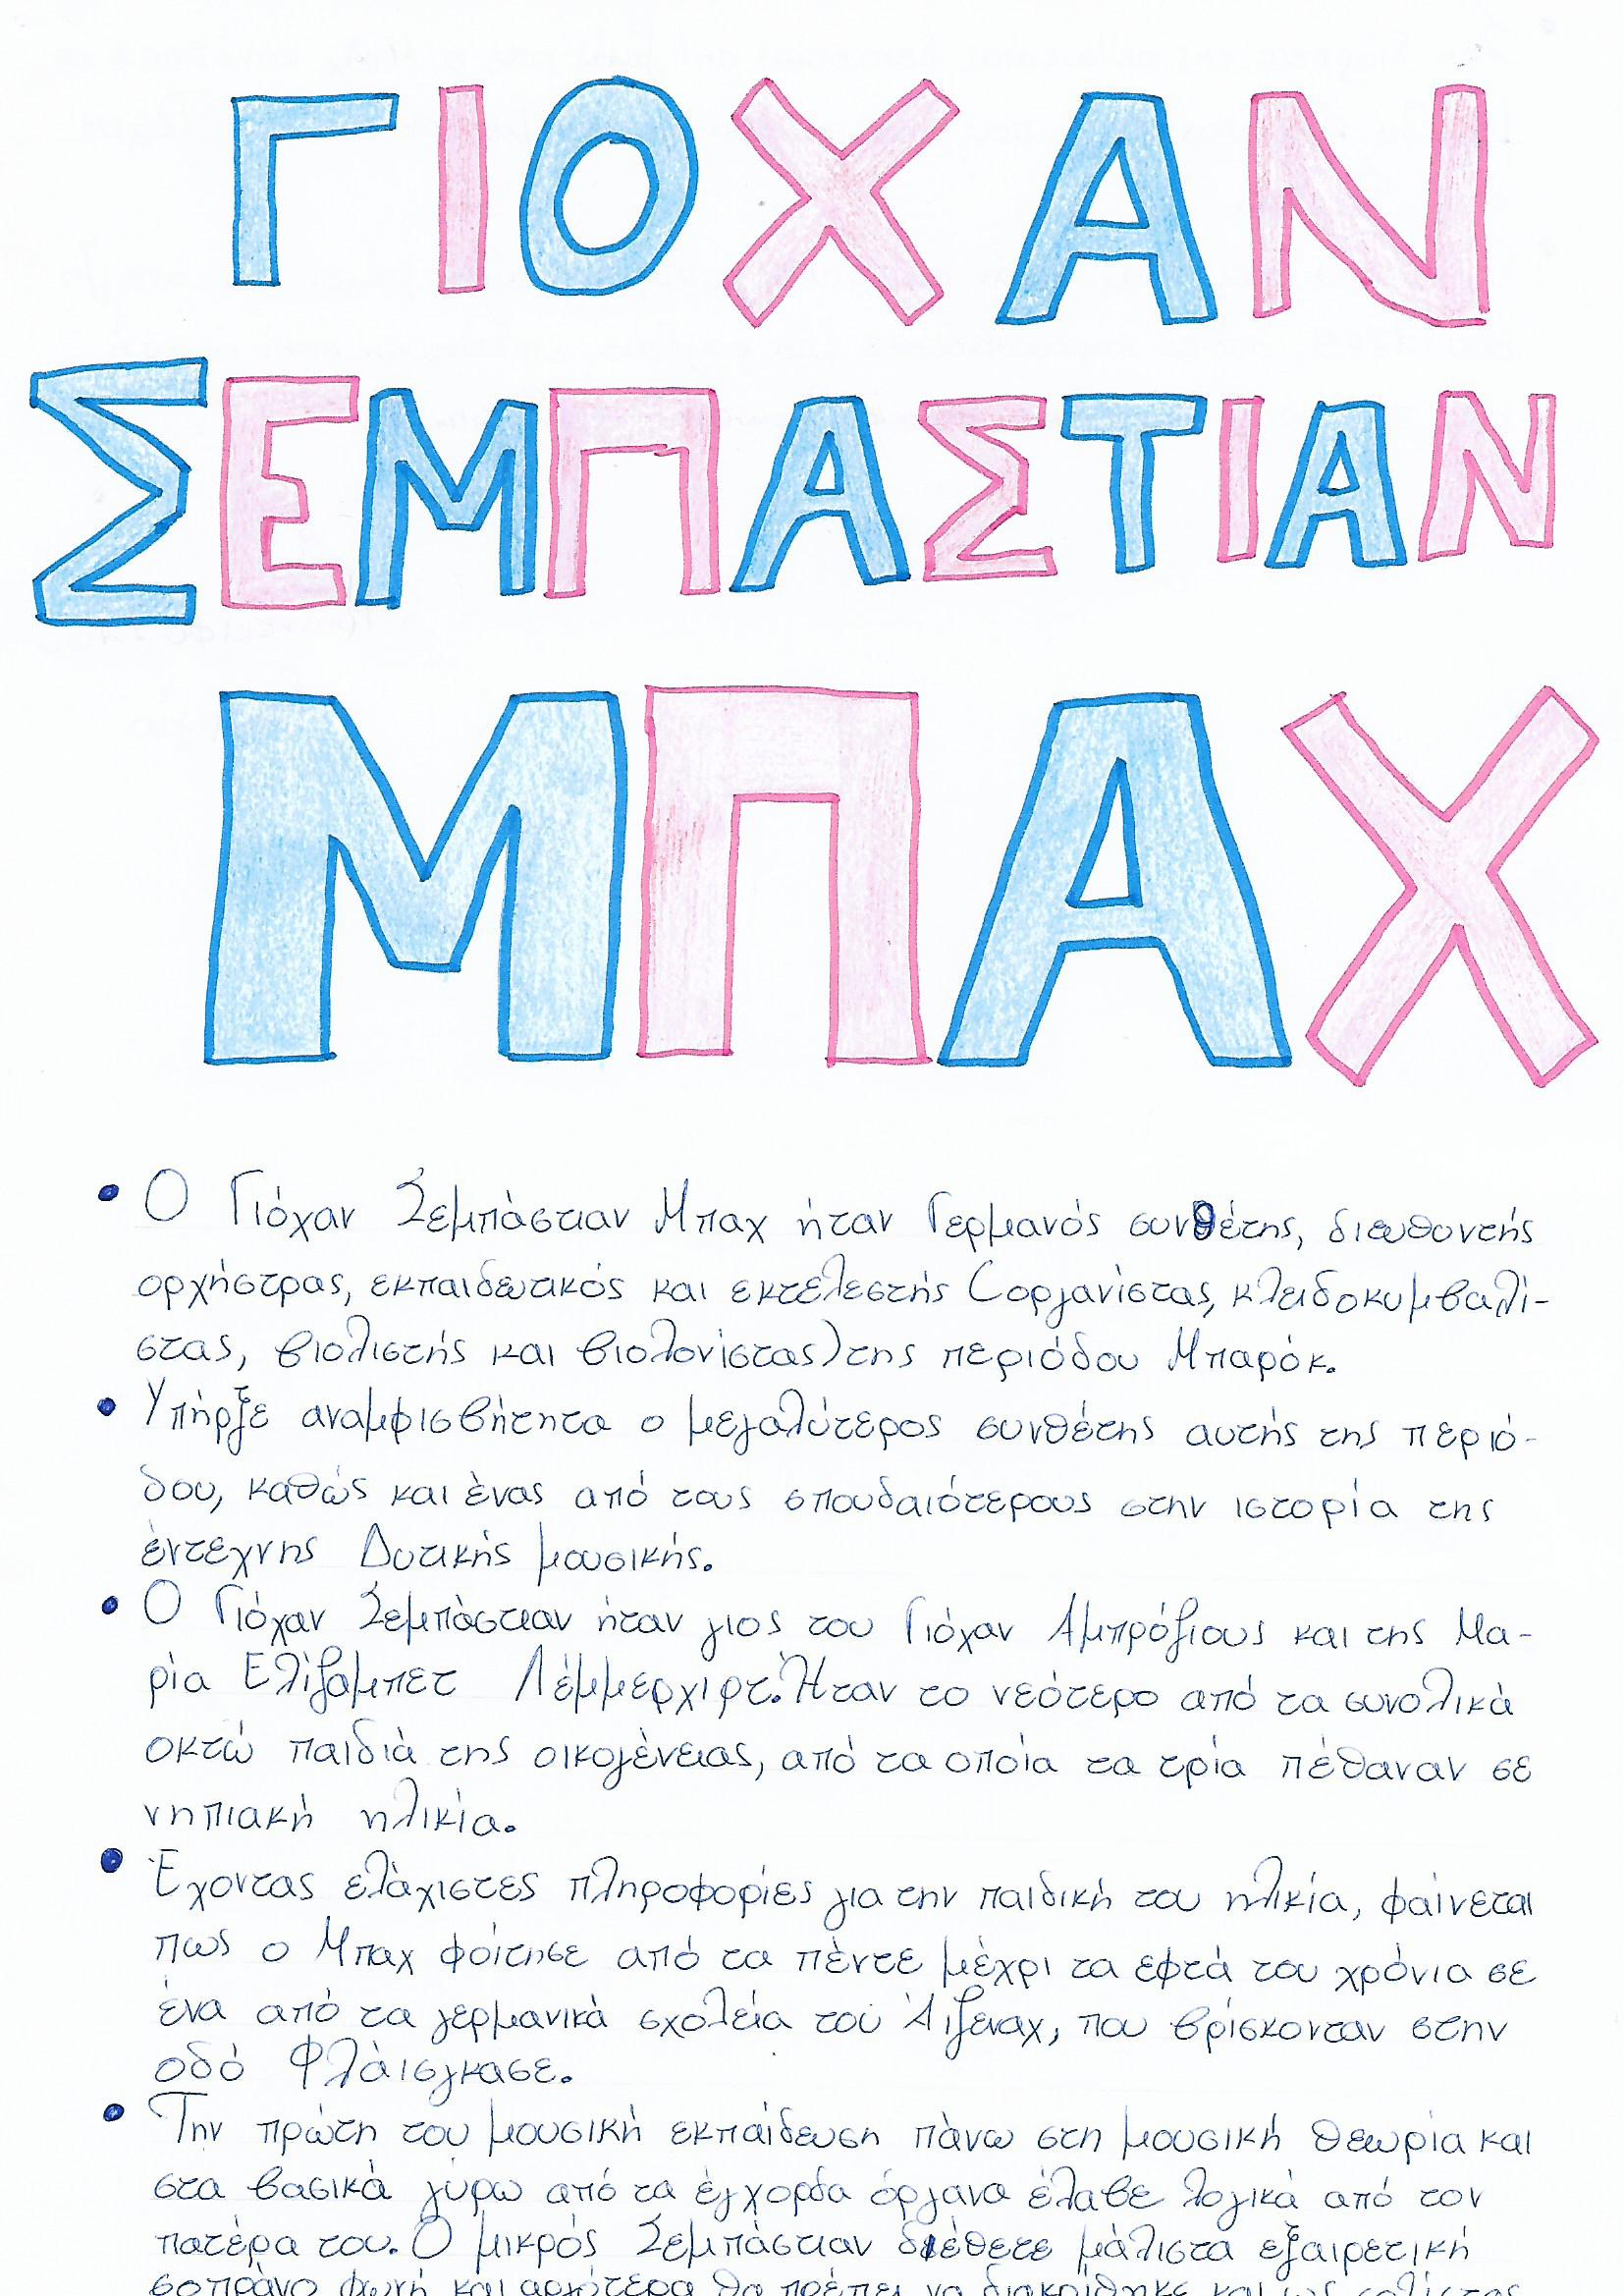 ΓΙΟΧΑΝ
ΣΕΜΠΑΣΤΙΑΝ
ΜΠΑΧ
• Ο Γιόχαν Σεμπάστιαν Μπαχ ήταν Γερμανός συνθέτης, διευθυντής
ορχήστρας, εκπαιδευτικός και εκτελεστής (οργανίστας, κλειδοκυμβαλί-
στας, βιολιστής και βιολονίστας) της περιόδου Μπαρόκ.
• Υπήρξε αναμφισβήτητα ο μεγαλύτερος συνθέτης αυτής της περιό-
δου, καθώς και ένας από τους σπουδαιότερους στην ιστορία της
έντεχνης Δυτικής μουσικής.
• Ο Γιόχαν Σεμπάστιαν ήταν γιος του Γιόχαν Αμπρόζιους και της Μα-
ρία Ελίζαμπετ Λέμμερχιρτ. Ήταν το νεότερο από τα συνολικά
οκτώ παιδιά της οικογένειας, από τα οποία τα τρία πέθαναν σε
νηπιακή ηλικία.
• Έχοντας ελάχιστες πληροφορίες για την παιδική του ηλικία, φαίνεται
πως ο Μπαχ φοίτησε από τα πέντε μέχρι τα εφτά του χρόνια σε
ένα από τα γερμανικά σχολεία του Άιζεναχ, που βρίσκονταν στην
οδό Φλάισγκασε.
• Την πρώτη του μουσική εκπαίδευση πάνω στη μουσική θεωρία και
στα βασικά γύρω από τα έγχορδα όργανα έλαβε λογικά από τον
πατέρα του. Ο μικρός Σεμπάστιαν διέθετε μάλιστα εξαιρετική
σοπράνο φωνή και αργότερα θα πρέπει να διακρίθηκε και ως σολίστας